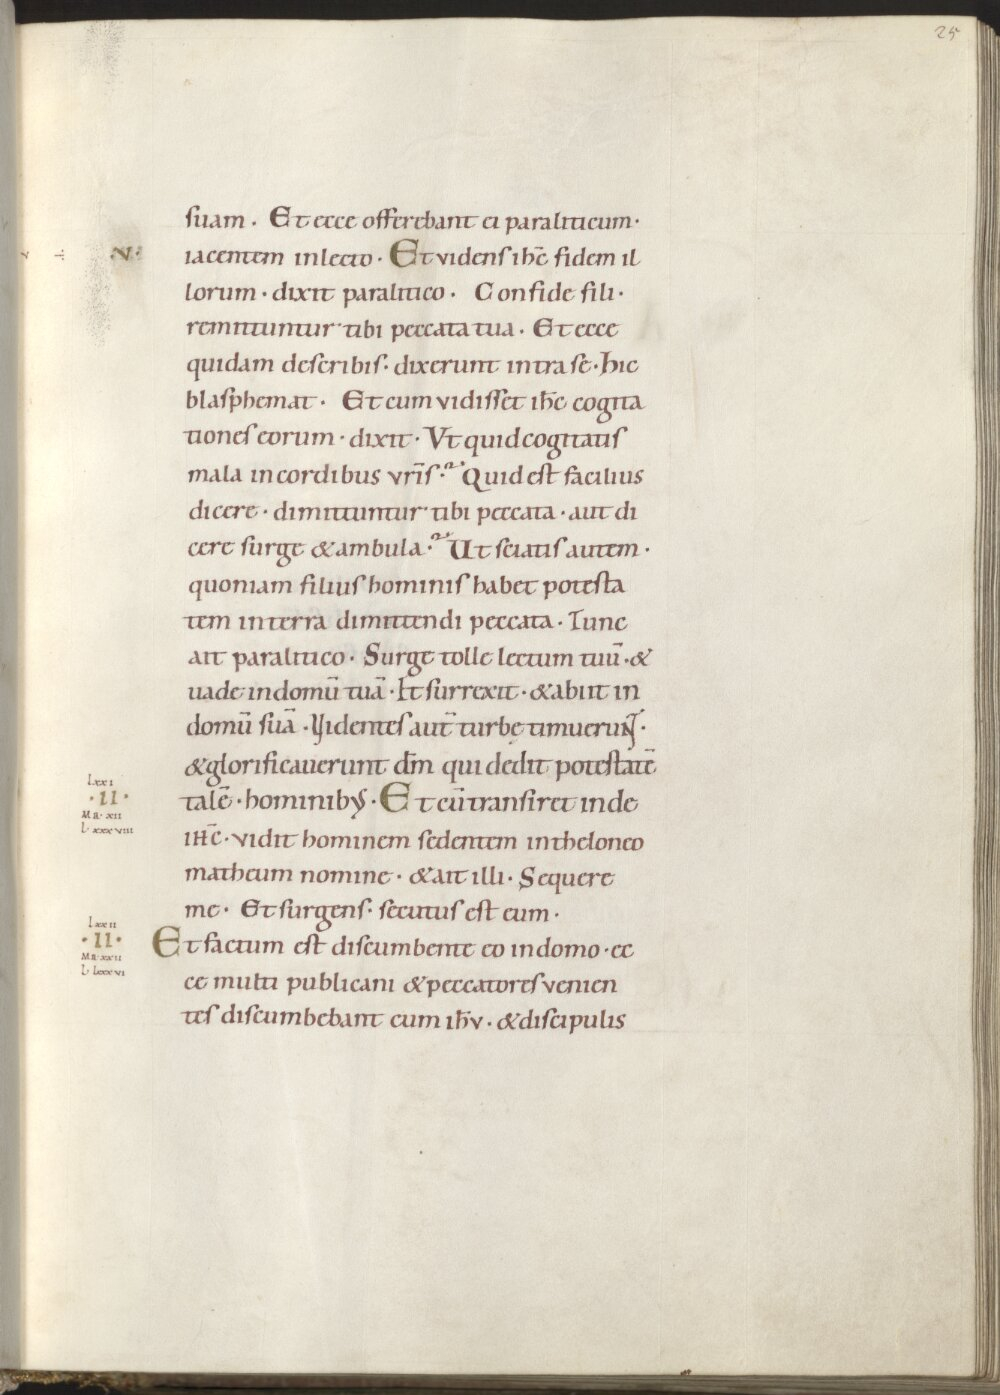 25
suam · Et ecce offerebant ei paraliticum ·
N:
iacentem in lecto · Et videns ihc̄ fidem il
lorum · dixit paralitico · Confide fili ·
remittuntur tibi peccata tua · Et ecce
quidam de scribis · dixerunt intra se · Hic
blasphemat · Et cum vidisset ihc̄ cogita
tiones eorum · dixit · Vt quid cogitatis
mala in cordibus vrīs · Quid est facilius
dicere · dimittuntur tibi peccata · aut di
cere surge & ambula · Ut sciatis autem ·
quoniam filius hominis habet potesta
tem in terra dimittendi peccata · Tunc
ait paralitico · Surge tolle lectum tuū · &
uade in domū tuā · Et surrexit · & abiit in
domū suā · Videntes aut̄ turbe timuerunt ·
& glorificaverunt dm̄ qui dedit potestatē
lxxi
· II ·
MR · xii
L · xxxviii
talē · hominibus · Et cū transiret inde
IHC̄ · vidit hominem sedentem in theloneo
matheum nomine · & ait illi · Sequere
me · Et surgens · secutus est eum ·
lxxii
· II ·
MR · xxii
L · lxxvi
Et factum est discumbente eo in domo · ec
ce multi publicani & peccatores venien
tes discumbebant cum ihv̄ · & discipulis